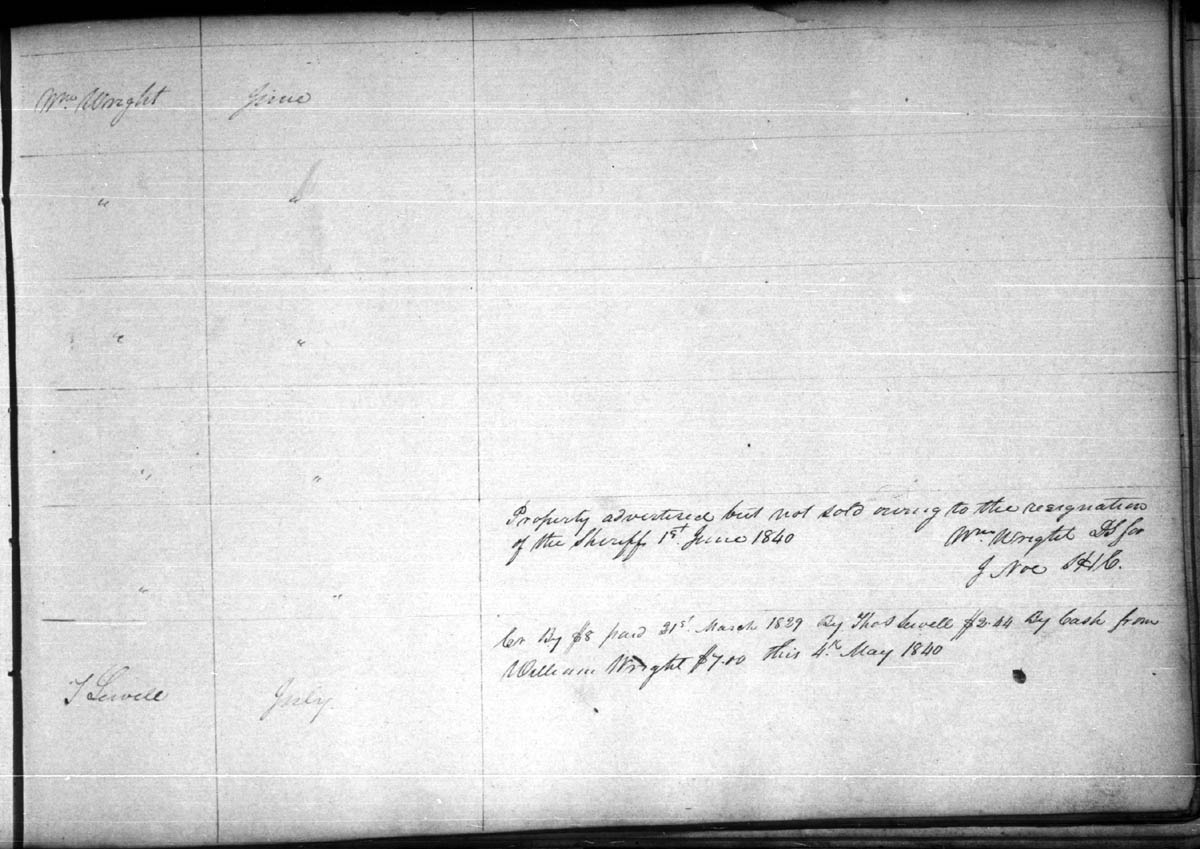 Wm. Wright June
" "
" "
" "
Property advertised but not sold owing to the resignation
of the Sheriff 1st June 1840 Wm Wright DS for
J Noe SHC.
" "
Cr By $8 paid 21st March 1829 By Thos Sewell $2.44 By Cash from
William Wright $7.00 this 4th May 1840
T Sewell July